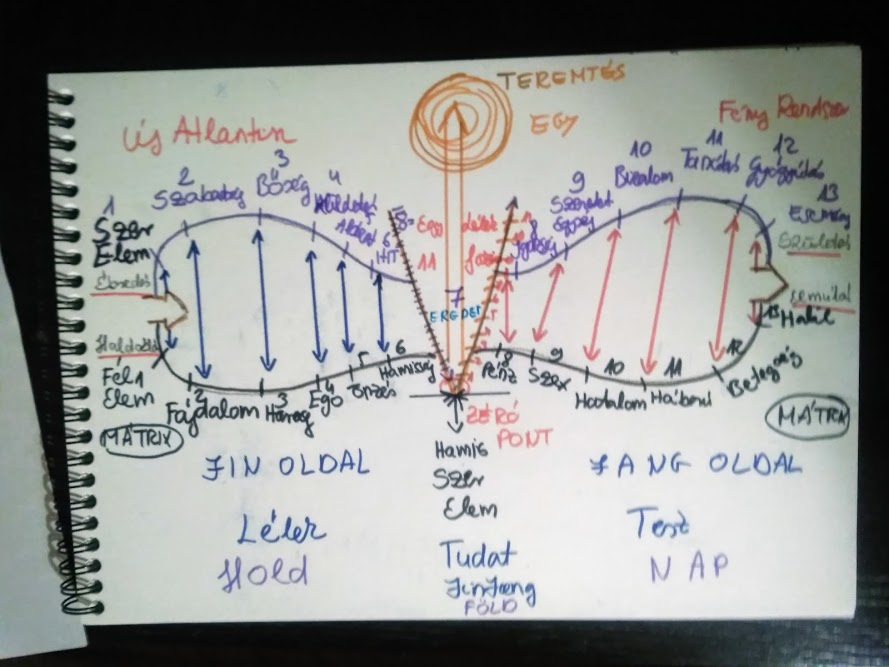 TEREMTÉS
EGY
Új Atlantisz
Fény Rendszer
1
Szer
Elem
Ébredés
2
Szabadság
3
Bőség
4
5
6
HIT
Ego
11
7
EREDET
8
9
Szeretet
10
Bizalom
11
Tanítás
12
Gyógyítás
13
Esemény
Haldoklás
Fél1
Elem
MÁTRIX
2
Fájdalom
3
Harag
4
Ego
5
6
Hamiság
ZÉRÓ
PONT
8
Pénz
9
Szex
10
Hatalom
11
Háború
12
Betegség
13
MÁTRIX
JIN OLDAL
Lélek
Hold
Hamis
Szer
Elem
Tudat
JinJang
FÖLD
JANG OLDAL
Test
NAP